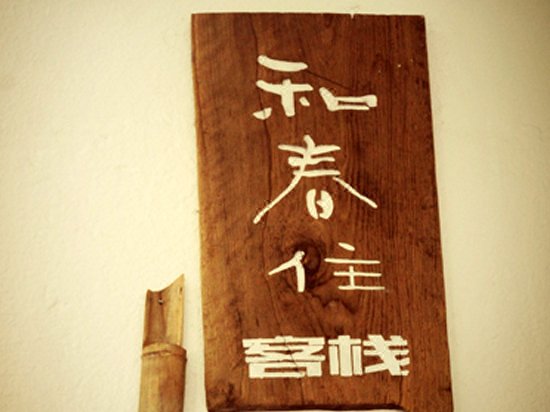 和
春
住
客栈